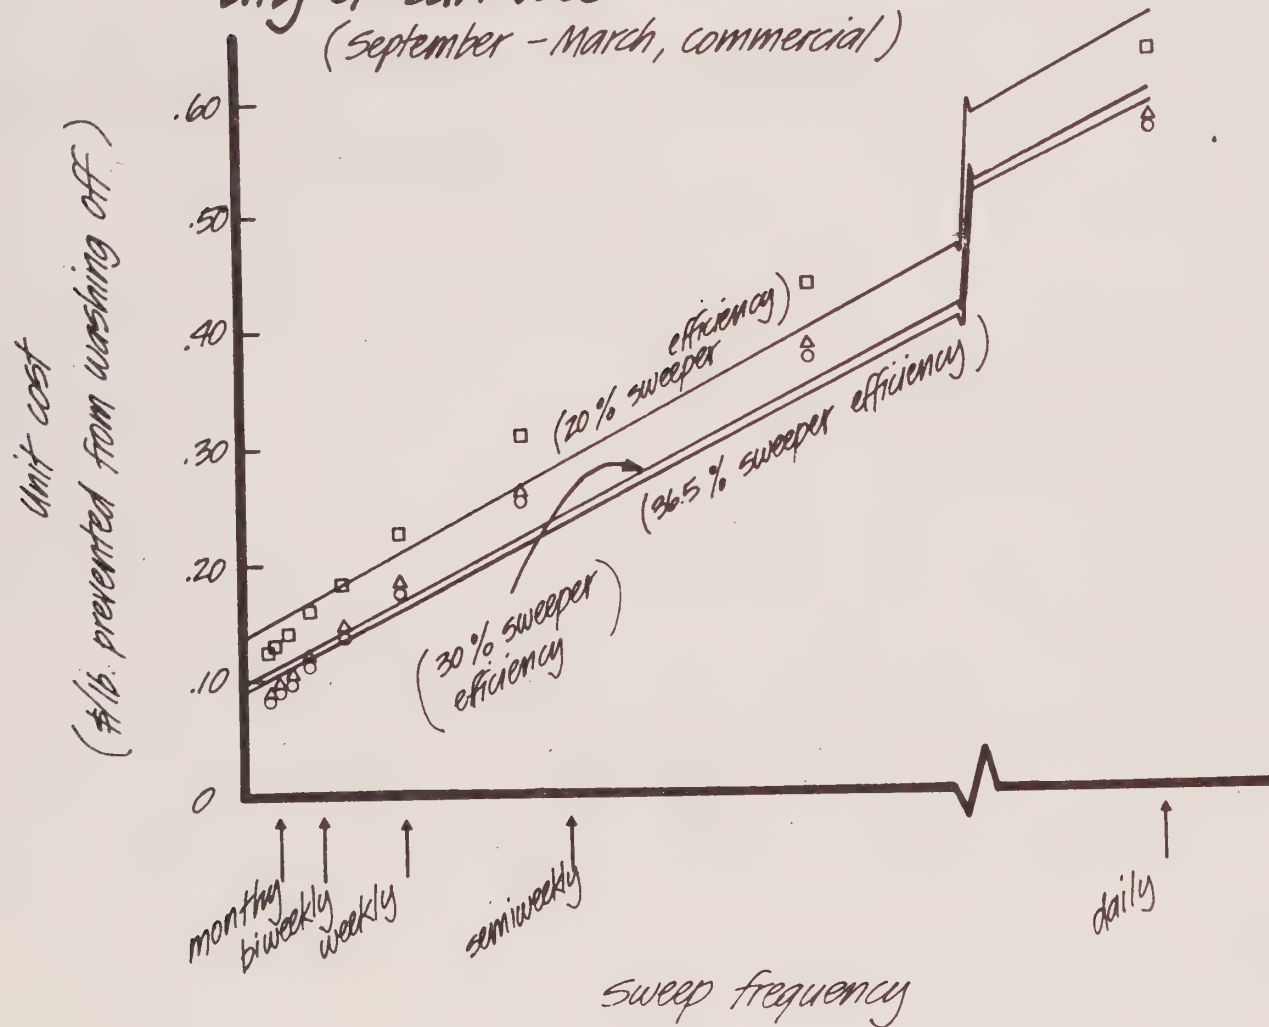 (September - March, commercial)
Unit cost
($/lb. prevented from washing off)
.60
.50
.40
.30
.20
.10
0
(20% sweeper
efficiency)
(36.5% sweeper efficiency)
(30% sweeper
efficiency)
monthy
biweekly
weekly
semiweekly
daily
Sweep frequency